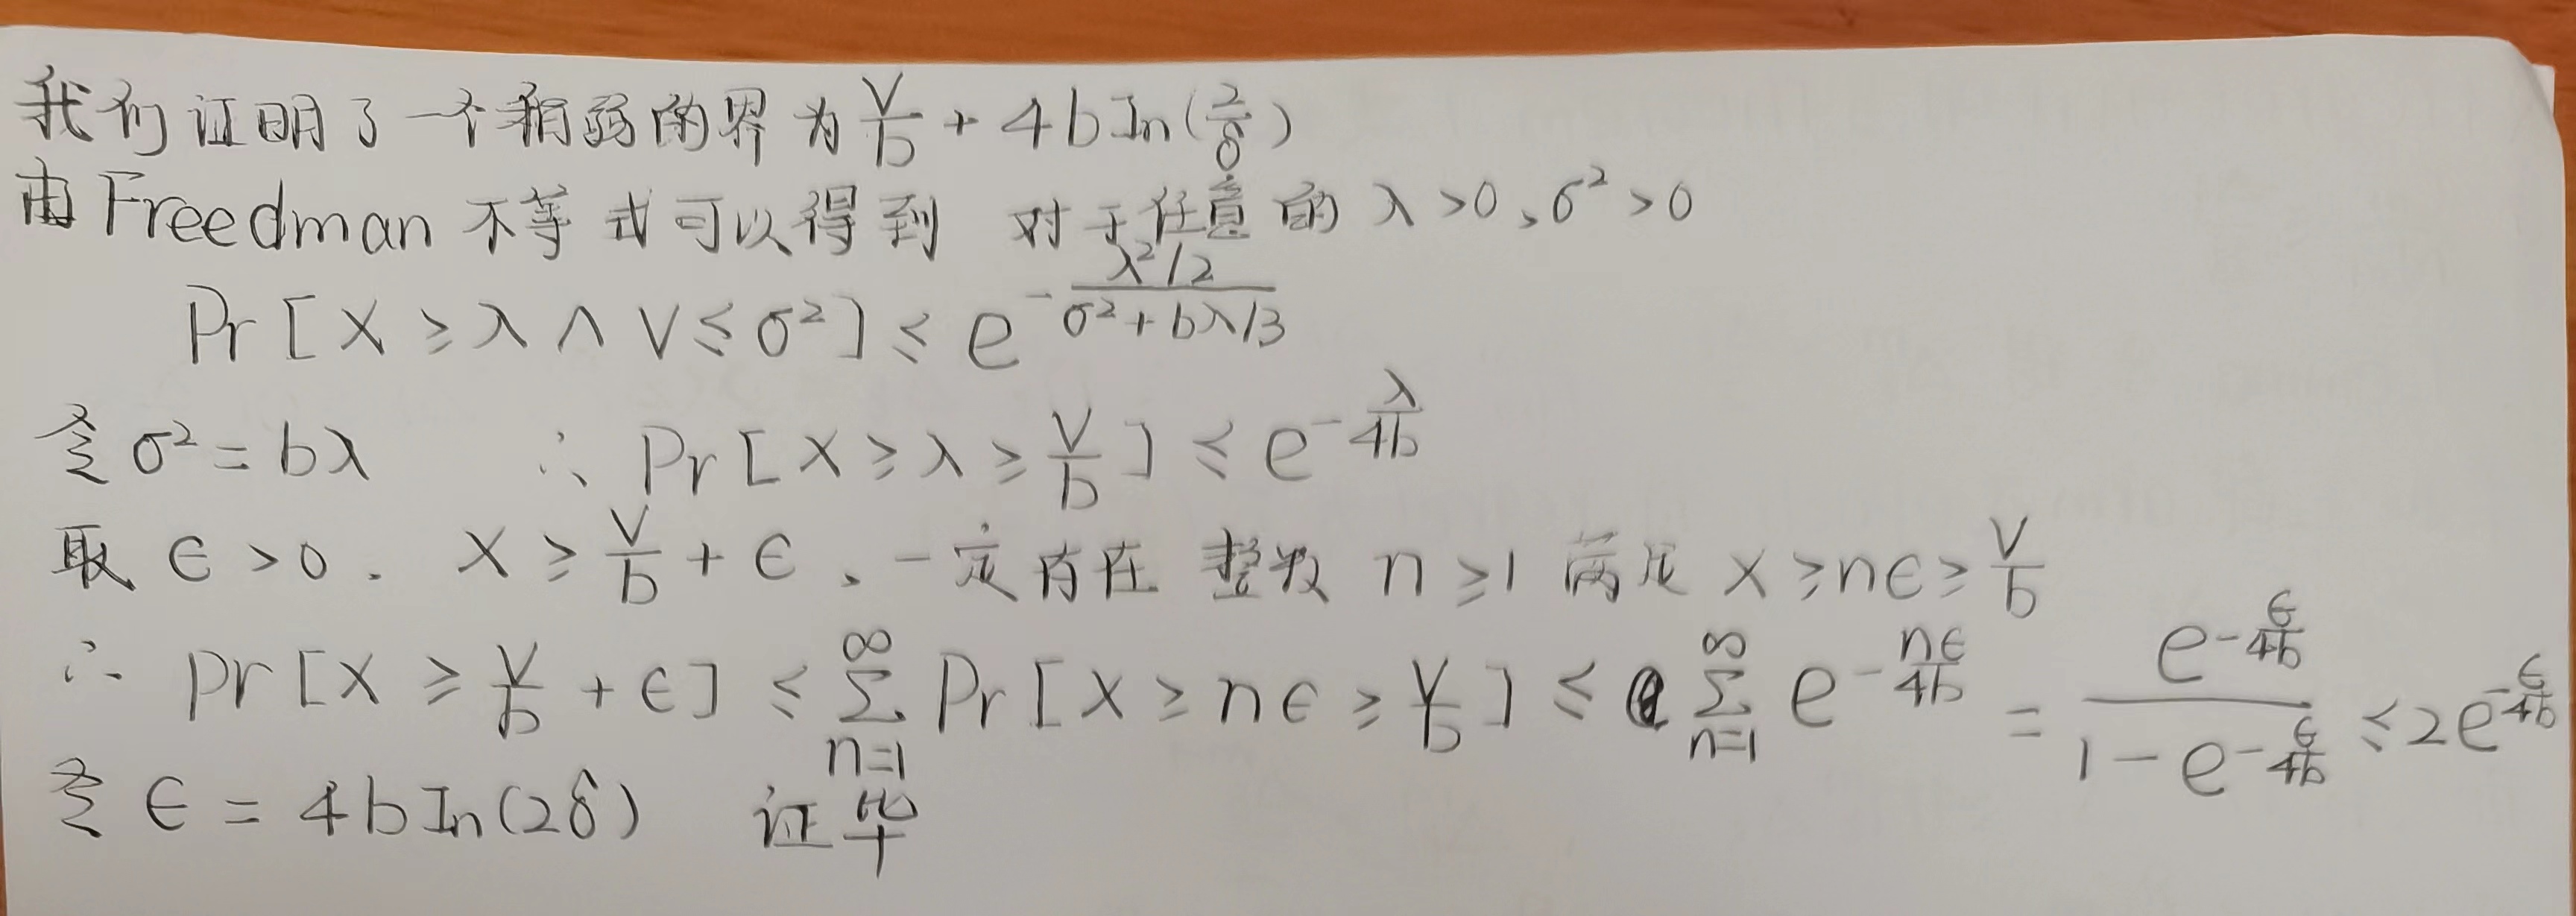 我们证明了一个稍弱的界为 V/b + 4b In(2/δ)
由Freedman 不等式可以得到 对于任意的 λ>0、σ²>0
Pr[X ≥ λ ∧ V ≤ σ²] ≤ e^{-\frac{λ²/2}{σ²+bλ/3}}
令 σ² = bλ ∴ Pr[X ≥ λ ≥ V/b] ≤ e^{-\frac{λ}{4b}}
取 ϵ > 0. X ≥ V/b + ϵ、一定存在 整数 n ≥ 1 满足 X ≥ nϵ ≥ V/b
∴ Pr[X ≥ V/b + ϵ] ≤ \sum_{n=1}^{∞} Pr[X ≥ nϵ ≥ V/b] ≤ \sum_{n=1}^{∞} e^{-\frac{nϵ}{4b}} = \frac{e^{-\frac{ϵ}{4b}}}{1-e^{-\frac{ϵ}{4b}}} ≤ 2e^{-\frac{ϵ}{4b}}
令 ϵ = 4b In(2δ) 证毕